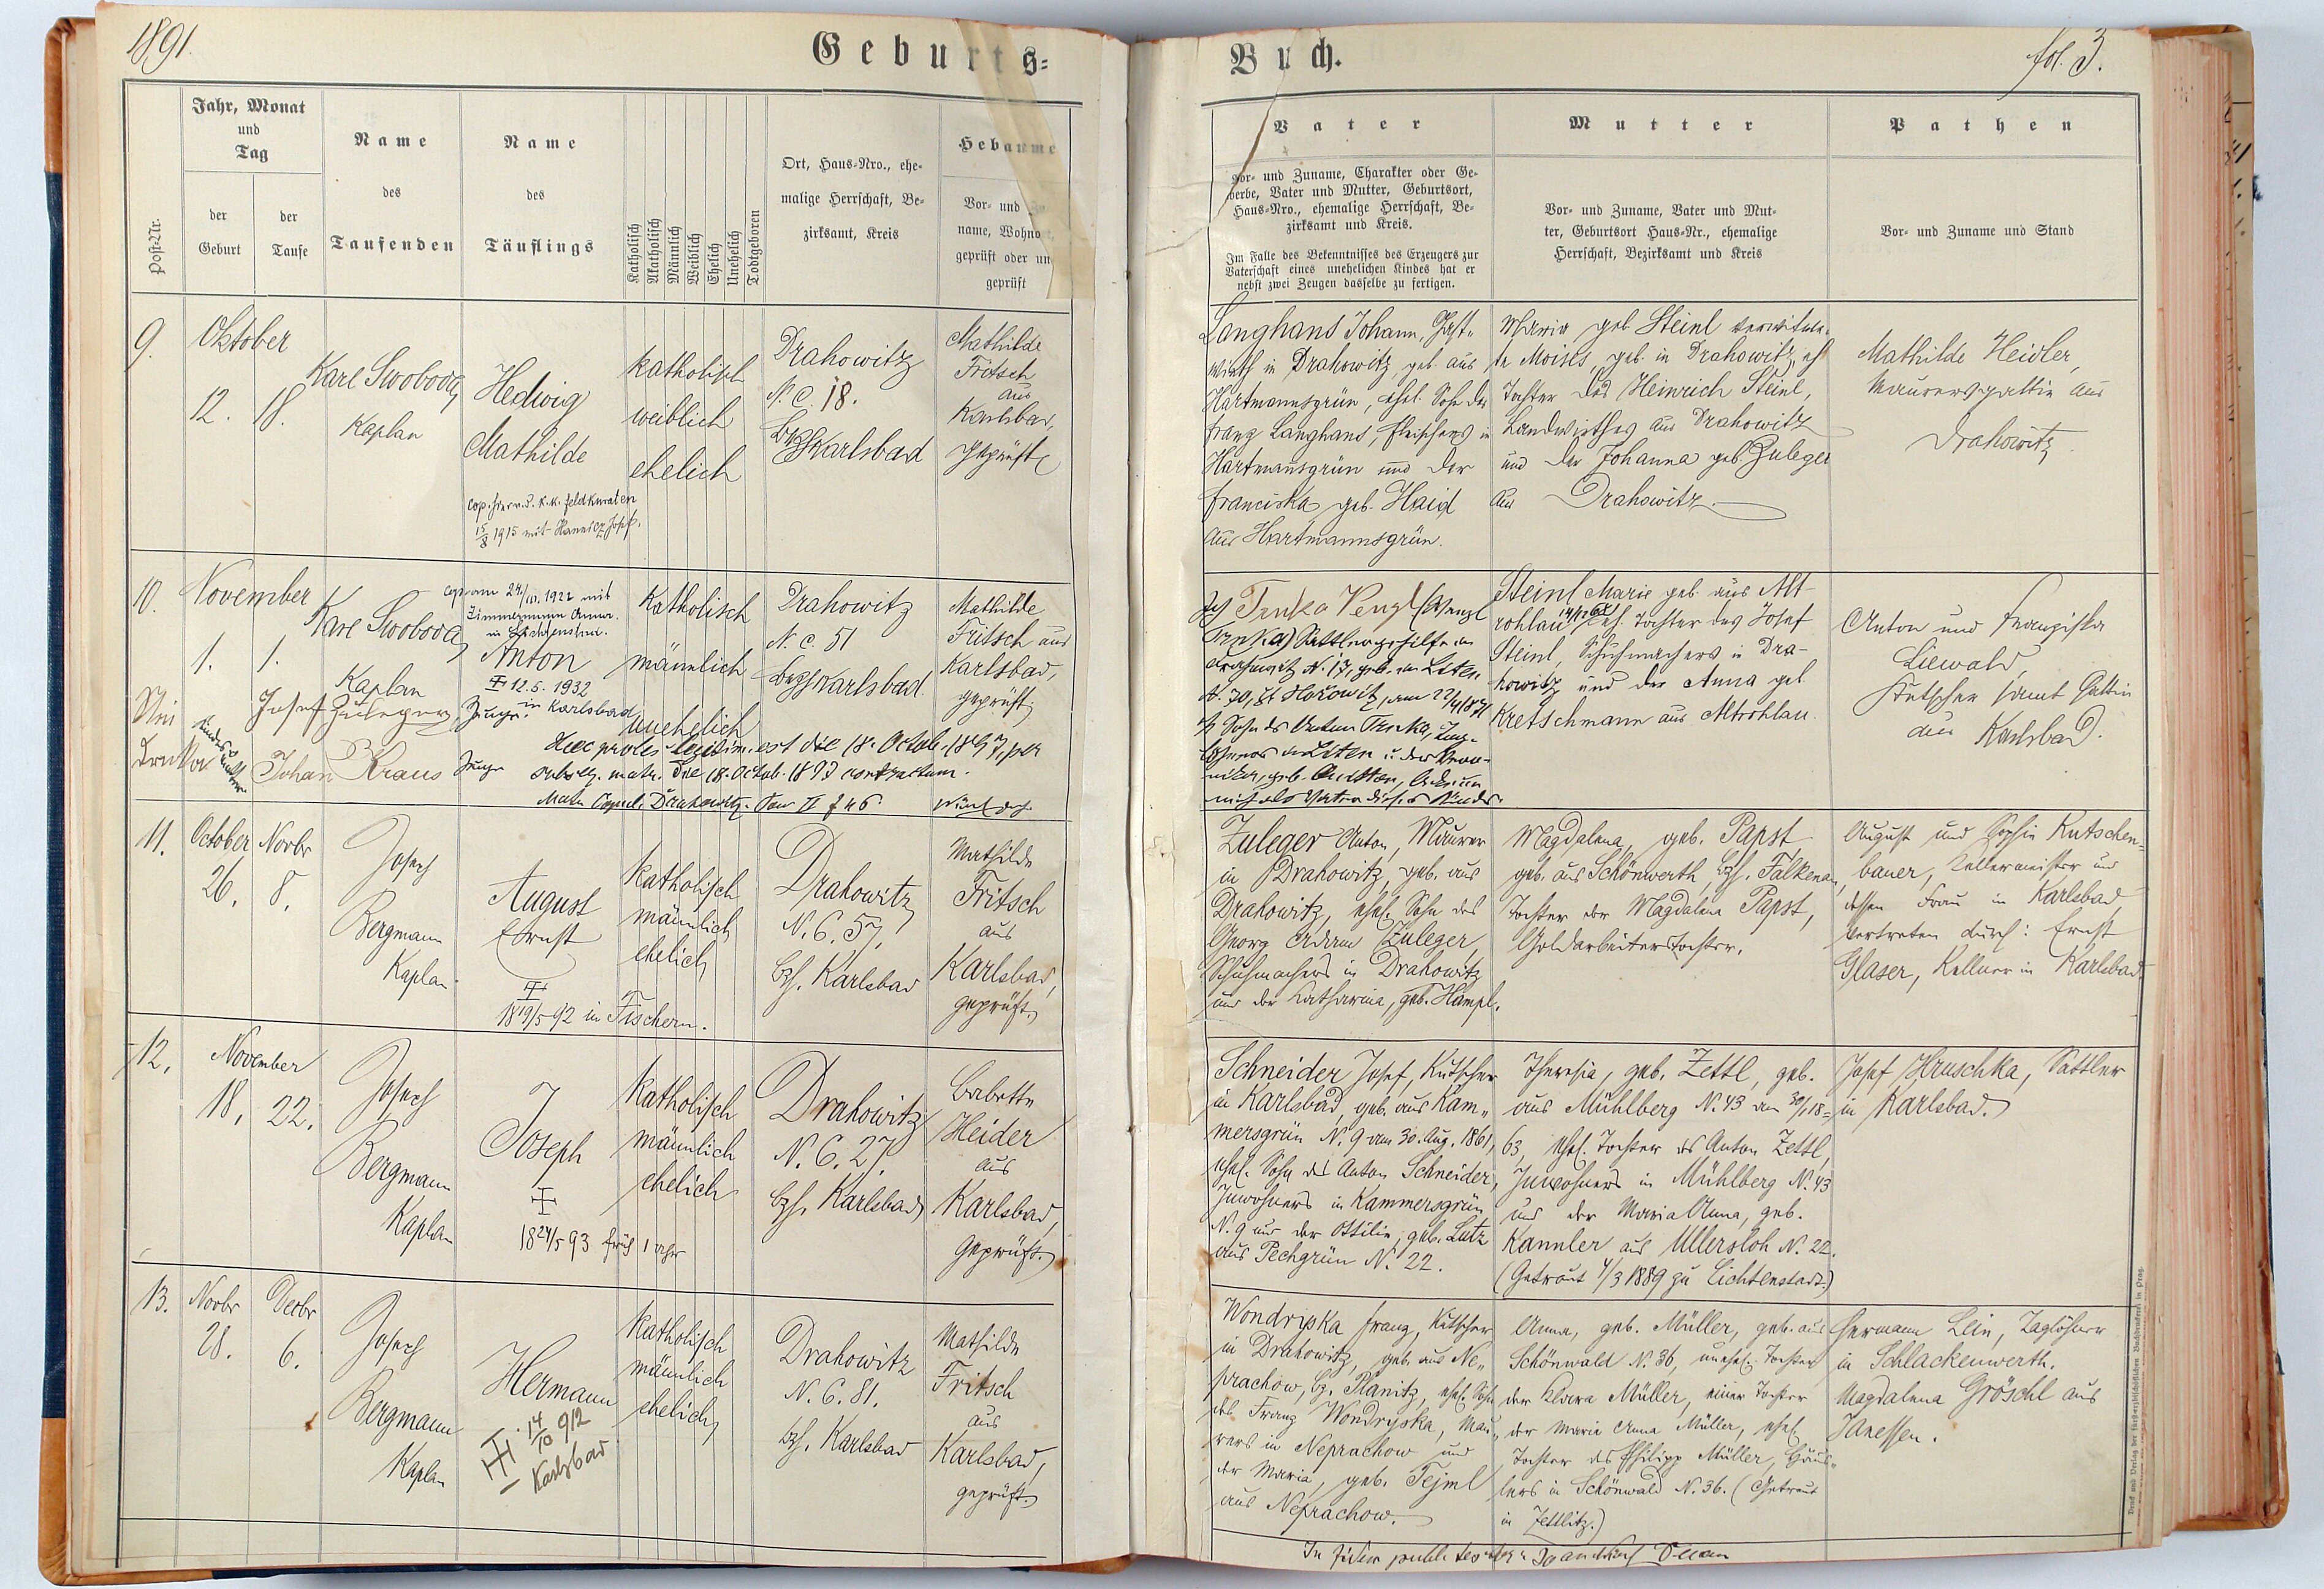 1891.
Geburts-
Buch.
fol. 3.
Post-Nr.
Jahr, Monat
und
Tag
der
Geburt
der
Taufe
Name
des
Taufenden
Name
des
Täuflings
Katholisch
Akatholisch
Männlich
Weiblich
Ehelich
Unehelich
Todtgeboren
Ort, Haus-Nro., ehe-
malige Herrschaft, Be-
zirksamt, Kreis
Hebamme
Vor- und
name, Wohno
geprüft oder un
geprüft
Vater
Vor- und Zuname, Charakter oder Ge-
werbe, Vater und Mutter, Geburtsort,
Haus-Nro., ehemalige Herrschaft, Be-
zirksamt und Kreis.
Im Falle des Bekenntnisses des Erzeugers zur
Vaterschaft eines unehelichen Kindes hat er
nebst zwei Zeugen dasselbe zu fertigen.
Mutter
Vor- und Zuname, Vater und Mut-
ter, Geburtsort Haus-Nr., ehemalige
Herrschaft, Bezirksamt und Kreis
Pathen
Vor- und Zuname und Stand
9.
Oktober
12.
18.
Karl Swoboda
Kaplan
Hedwig
Mathilde
1915 mit
katholisch
weiblich
ehelich
Drahowitz
N. C. 18.
Karlsbad
Mathilde
Fritsch
aus
Karlsbad,
geprüft
Langhans Johann, Gast-
wirth in Drahowitz geb. aus
Hartmannsgrün, ehel. Sohn des
Franz Langhans, Fleischers in
Hartmannsgrün und der
Franciska geb. Haid
aus Hartmannsgrün.
Maria geb. Steinl verwitwe-
te Moises, geb. in Drahowitz, eh
Tochter des Heinrich Steinl,
Landwirthes aus Drahowitz
und der Johanna geb. Zuleger
aus Drahowitz.
Mathilde Heidler,
Maurersgattin aus
Drahowitz
10.
November
1.
1.
Karl Swoboda
Kaplan
1922 mit
Zimmermann Anna
Anton
12.5. 1932
in Karlsbad
Josef Zuleger, Zeuge.
Johan Kraus Zeuge
katholisch
männlich
unehelich
Haec proles legitim. est die 18. Octob. 1897 per
subseq. matr. die 18. Octob. 1897 contractum.
Drahowitz
N. C. 51
Karlsbad.
Mathilde
Fritsch aus
Karlsbad,
geprüft
Trnka Venzl (Wenzl
Trnka) Sattlergehilfe in
Steinl Marie geb. aus Alt-
rohlau eh. Tochter des Josef
Steinl, Schuhmachers in Dra-
howitz und der Anna geb.
Kretschmann aus Altrohlau.
Anton und Franziska
Liewald,
Kutscher samt Gattin
aus Karlsbad.
11.
October
26.
Novbr
8.
Joseph
Bergmann
Kaplan
August
Ernst
18 19/5 92 in Fischern.
katholisch
männlich
ehelich
Drahowitz
N. C. 57,
bzh. Karlsbad
Mathilde
Fritsch
aus
Karlsbad,
geprüft.
Zuleger Anton, Maurer
in Drahowitz, geb. aus
Drahowitz, ehel. Sohn des
Georg Adam Zuleger,
Schuhmachers in Drahowitz
und der Katharina, geb. Hampl.
Magdalena, geb. Papst,
geb. aus Schönwerth, bzh. Falkenau,
Tochter der Magdalena Papst,
Goldarbeiterstochter.
August und Sophie Kutschen-
bauer, Kellermeister und
dessen Frau in Karlsbad,
vertreten durch: Ernst
Glaser, Kellner in Karlsbad
12.
November
18.
22.
Joseph
Bergmann
Kaplan
Joseph
18 24/5 93 früh 1 Uhr
katholisch
männlich
ehelich
Drahowitz
N. C. 27.
bzh. Karlsbad
Babette
Heider
aus
Karlsbad,
geprüft.
Schneider Josef, Kutscher
in Karlsbad, geb. aus Kam-
mersgrün N. 9 am 30. Aug. 1861,
ehel. Sohn des Anton Schneider,
Inwohners in Kammersgrün
N. 9 und der Ottilie, geb. Lutz
aus Pechgrün N. 22.
Theresia, geb. Zettl, geb.
aus Mühlberg N. 43 am 30/1 18-
63, ehel. Tochter des Anton Zettl,
Inwohners in Mühlberg N. 43
und der Maria Anna, geb.
Kannler aus Ullersloh N. 22.
(Getraut 4/3 1889 zu Lichtenstadt.)
Josef Hruschka, Sattler
in Karlsbad.
13.
Novbr
28.
Decbr
6.
Joseph
Bergmann
Kaplan
Hermann
14/10 912
Karlsbad
katholisch
männlich
ehelich
Drahowitz
N. C. 81.
bzh. Karlsbad
Mathilde
Fritsch
aus
Karlsbad,
geprüft.
Wondryska Franz, Kutscher
in Drahowitz, geb. aus Ne-
prachow, bz. Planitz, ehel. Sohn
des Franz Wondryska, Mau-
rers in Neprachow und
der Maria, geb. Tejml
aus Neprachow.
Anna, geb. Müller, geb. aus
Schönwald N. 36, unehel. Tochter
der Klara Müller, einer Tochter
der Maria Anna Müller, ehel.
Tochter des Philipp Müller, Häus-
lers in Schönwald N. 36. (Getraut
in Zettlitz.)
Hermann Lein, Taglöhner
in Schlackenwerth.
Magdalena Gröschl aus
Janessen.